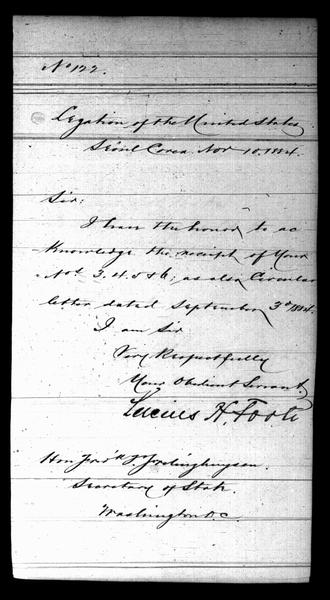 No 122.
Legation of the United States
Séoul Corea. Nov 10, 1884.
Sir:
I have the honor to ac-
knowledge the receipt of Your
Nos 3. 4. 5 & 6; as also Circular
letter dated September 3d 1884.
I am Sir
Very Respectfully
Your Obedient Servant,
Lucius H. Foote
Hon. Fredk T. Frelinghuysen.
Secretary of State.
Washington D.C.